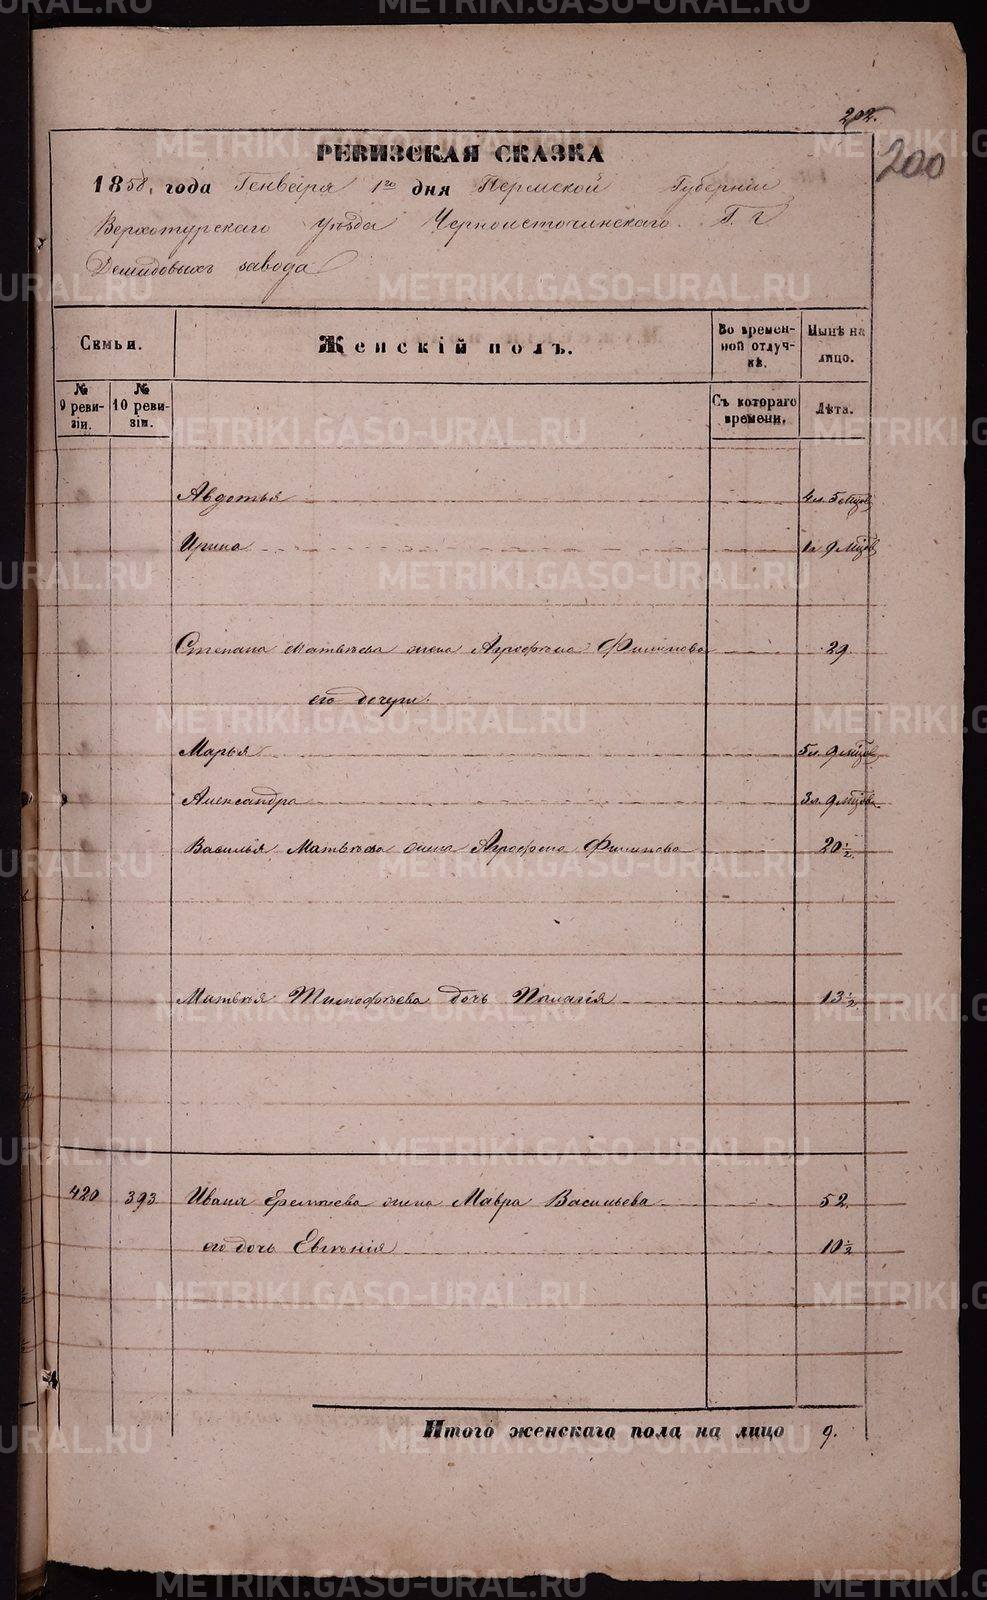 202.
200
РЕВИЗСКАЯ СКАЗКА
1858, года Генваря 1го дня Пермской Губернии
Верхотурскаго Уѣзда Черноисточинскаго Г. г
Демидовыхъ завода
Семьи.
Женскій полъ.
Во временной отлучкѣ.
Нынѣ на лицо.
№ 9 ревизіи.
№ 10 ревизіи.
Съ котораго времени.
Лѣта.
Авдотья 4 л. 5 мцов
Ирина 1 л 9 мцов
Степана Матвѣева жена Агрофена Филипова 29.
его дочери:
Марья 5 л. 9 мцов
Александра 3 л. 9 мцов
Василья Матвѣева жена Агрофена Филипова 20½
Матвѣя Тимофѣева дочь Палагія 13½
420 393 Ивана Ермилова жена Мавра Васильева 52.
его дочь Евгѣнія 10½
Итого женскаго пола на лицо 9.
METRIKI.GASO-URAL.RU